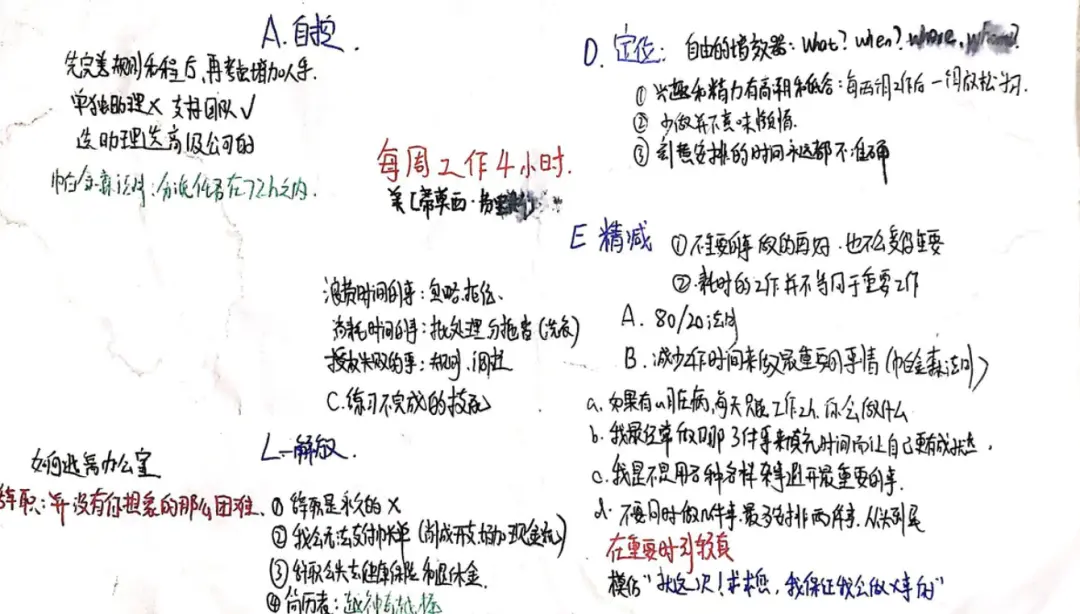 A.自控.
先完善规则和程后,再考虑增加人手.
单独助理× 支持团队√
选助理选高级公司的
帕金森法则:分派任务在72h之内.
每周工作4小时.
美[蒂莫西·
D.定位:自由的增效器:What? when? where,
①兴趣和精力有高潮和低谷:每两周工作后一周放松学习.
②少做并不意味懒惰.
③幻想安排的时间永远都不准确
E 精减 ①不重要的事做的再好.也不会变得重要
②.耗时的工作并不等同于重要工作
A.80/20法则
B.减少工作时间来做最重要的事情(帕金森法则)
a.如果有心脏病,每天只能工作2h.你会做什么
b.我最经常做的哪3件事来填充时间而让自己更有成就感.
c.我是不是用各种各样杂事避开最重要的事.
d.不要同时做几件事.最多安排两件事.从头到尾
在重要时刻较真
模仿"就这一次!求求您,我保证我会做×事的"
浪费时间的事:忽略、
消耗时间的事:批处理与拖沓(洗衣)
授权失败的事:规则、调
C.练习不完成的技能
L—解放.
如何逃离办公室
辞职:并没有你想象的那么困难.
①辞职是永久的×
②我会无法支付帐单(削减开支增加现金流)
③辞职会失去健康保险和退休金.
④简历者:越